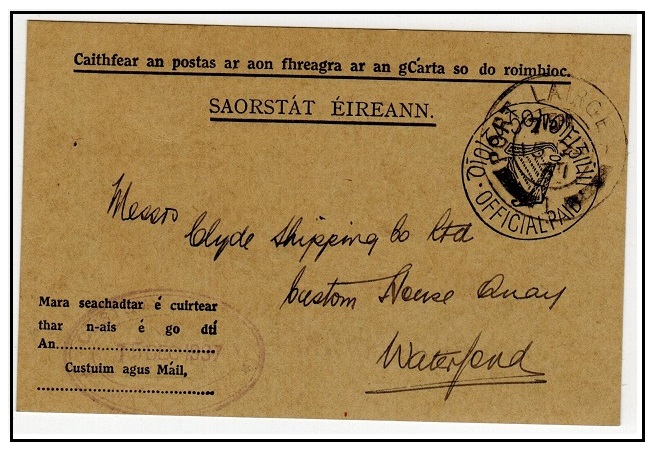 Caithfear an postas ar aon fhreagra ar an gCárta so do roimhioc.
SAORSTÁT ÉIREANN.
PORT LAIRGE
OFFICIAL PAID
Messrs Clyde Shipping Co Ltd
Custom House Quay
Waterford
Mara seachadtar é cuirtear
thar n-ais é go dtí
An
Custuim agus Máil,
1937